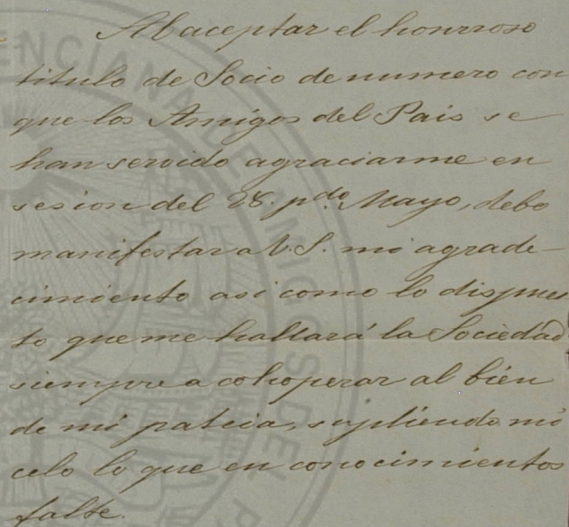 Al aceptar el honroso
titulo de Socio de numero con
que los Amigos del Pais se
han servido agraciarme en
sesion del 28. pdo Mayo, debo
manifestar a V. S. mi agrade-
cimiento asi como lo dispues
to que me hallará la Sociedad
siempre a cohoperar al bien
de mi patria, supliendo mi
celo lo que en conocimientos
falte.